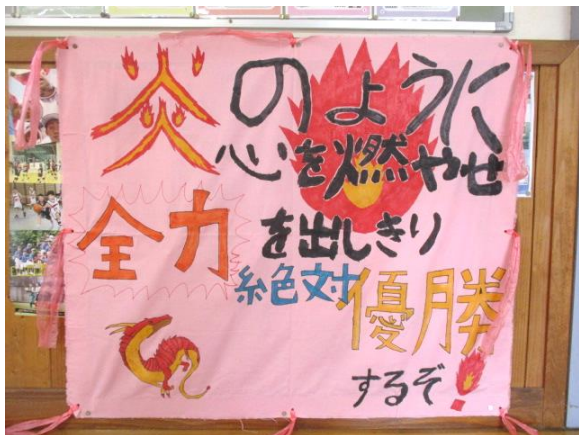 炎のように
心を燃やせ
全力を出しきり
絶対優勝
するぞ!